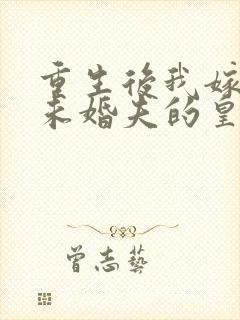 重生後我嫁
未婚夫的皇
曾志藝